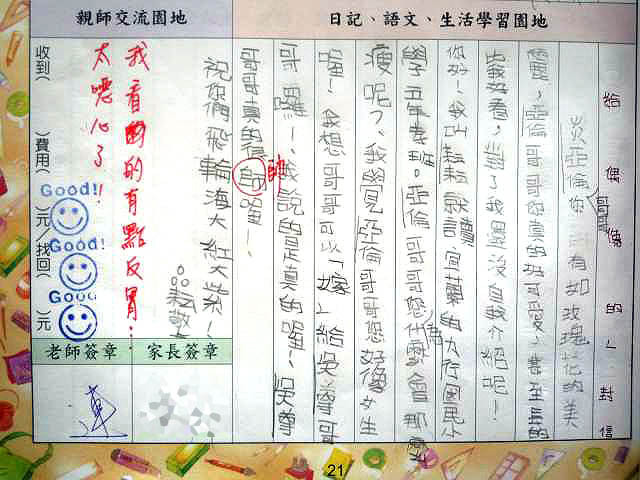 日記、語文、生活學習園地
給偶像的一封信
炎亞倫你有如玫瑰花的美
麗，亞倫哥哥你真的好可愛，甚至長的
哥
比我好看，對了我還沒自我介紹呢！
你好！我叫耘耘就讀宜蘭的大存國民小
學五年孝班。亞倫哥哥您什麼會那麼
瘦呢？、我覺見亞倫哥哥您好像女生
喔！我想哥哥可以「嫁」給吳尊哥
哥囉！、我說的是真的喔！吳尊
哥哥真的很師喔！
帥
祝你們飛輪海大紅大紫！
耘敬
親師交流園地
我看的有點反胃：
太噁心了！
收到（ ）費用（ ）元找回（ ）元
Good!!
Good!
Good
老師簽章
家長簽章
21